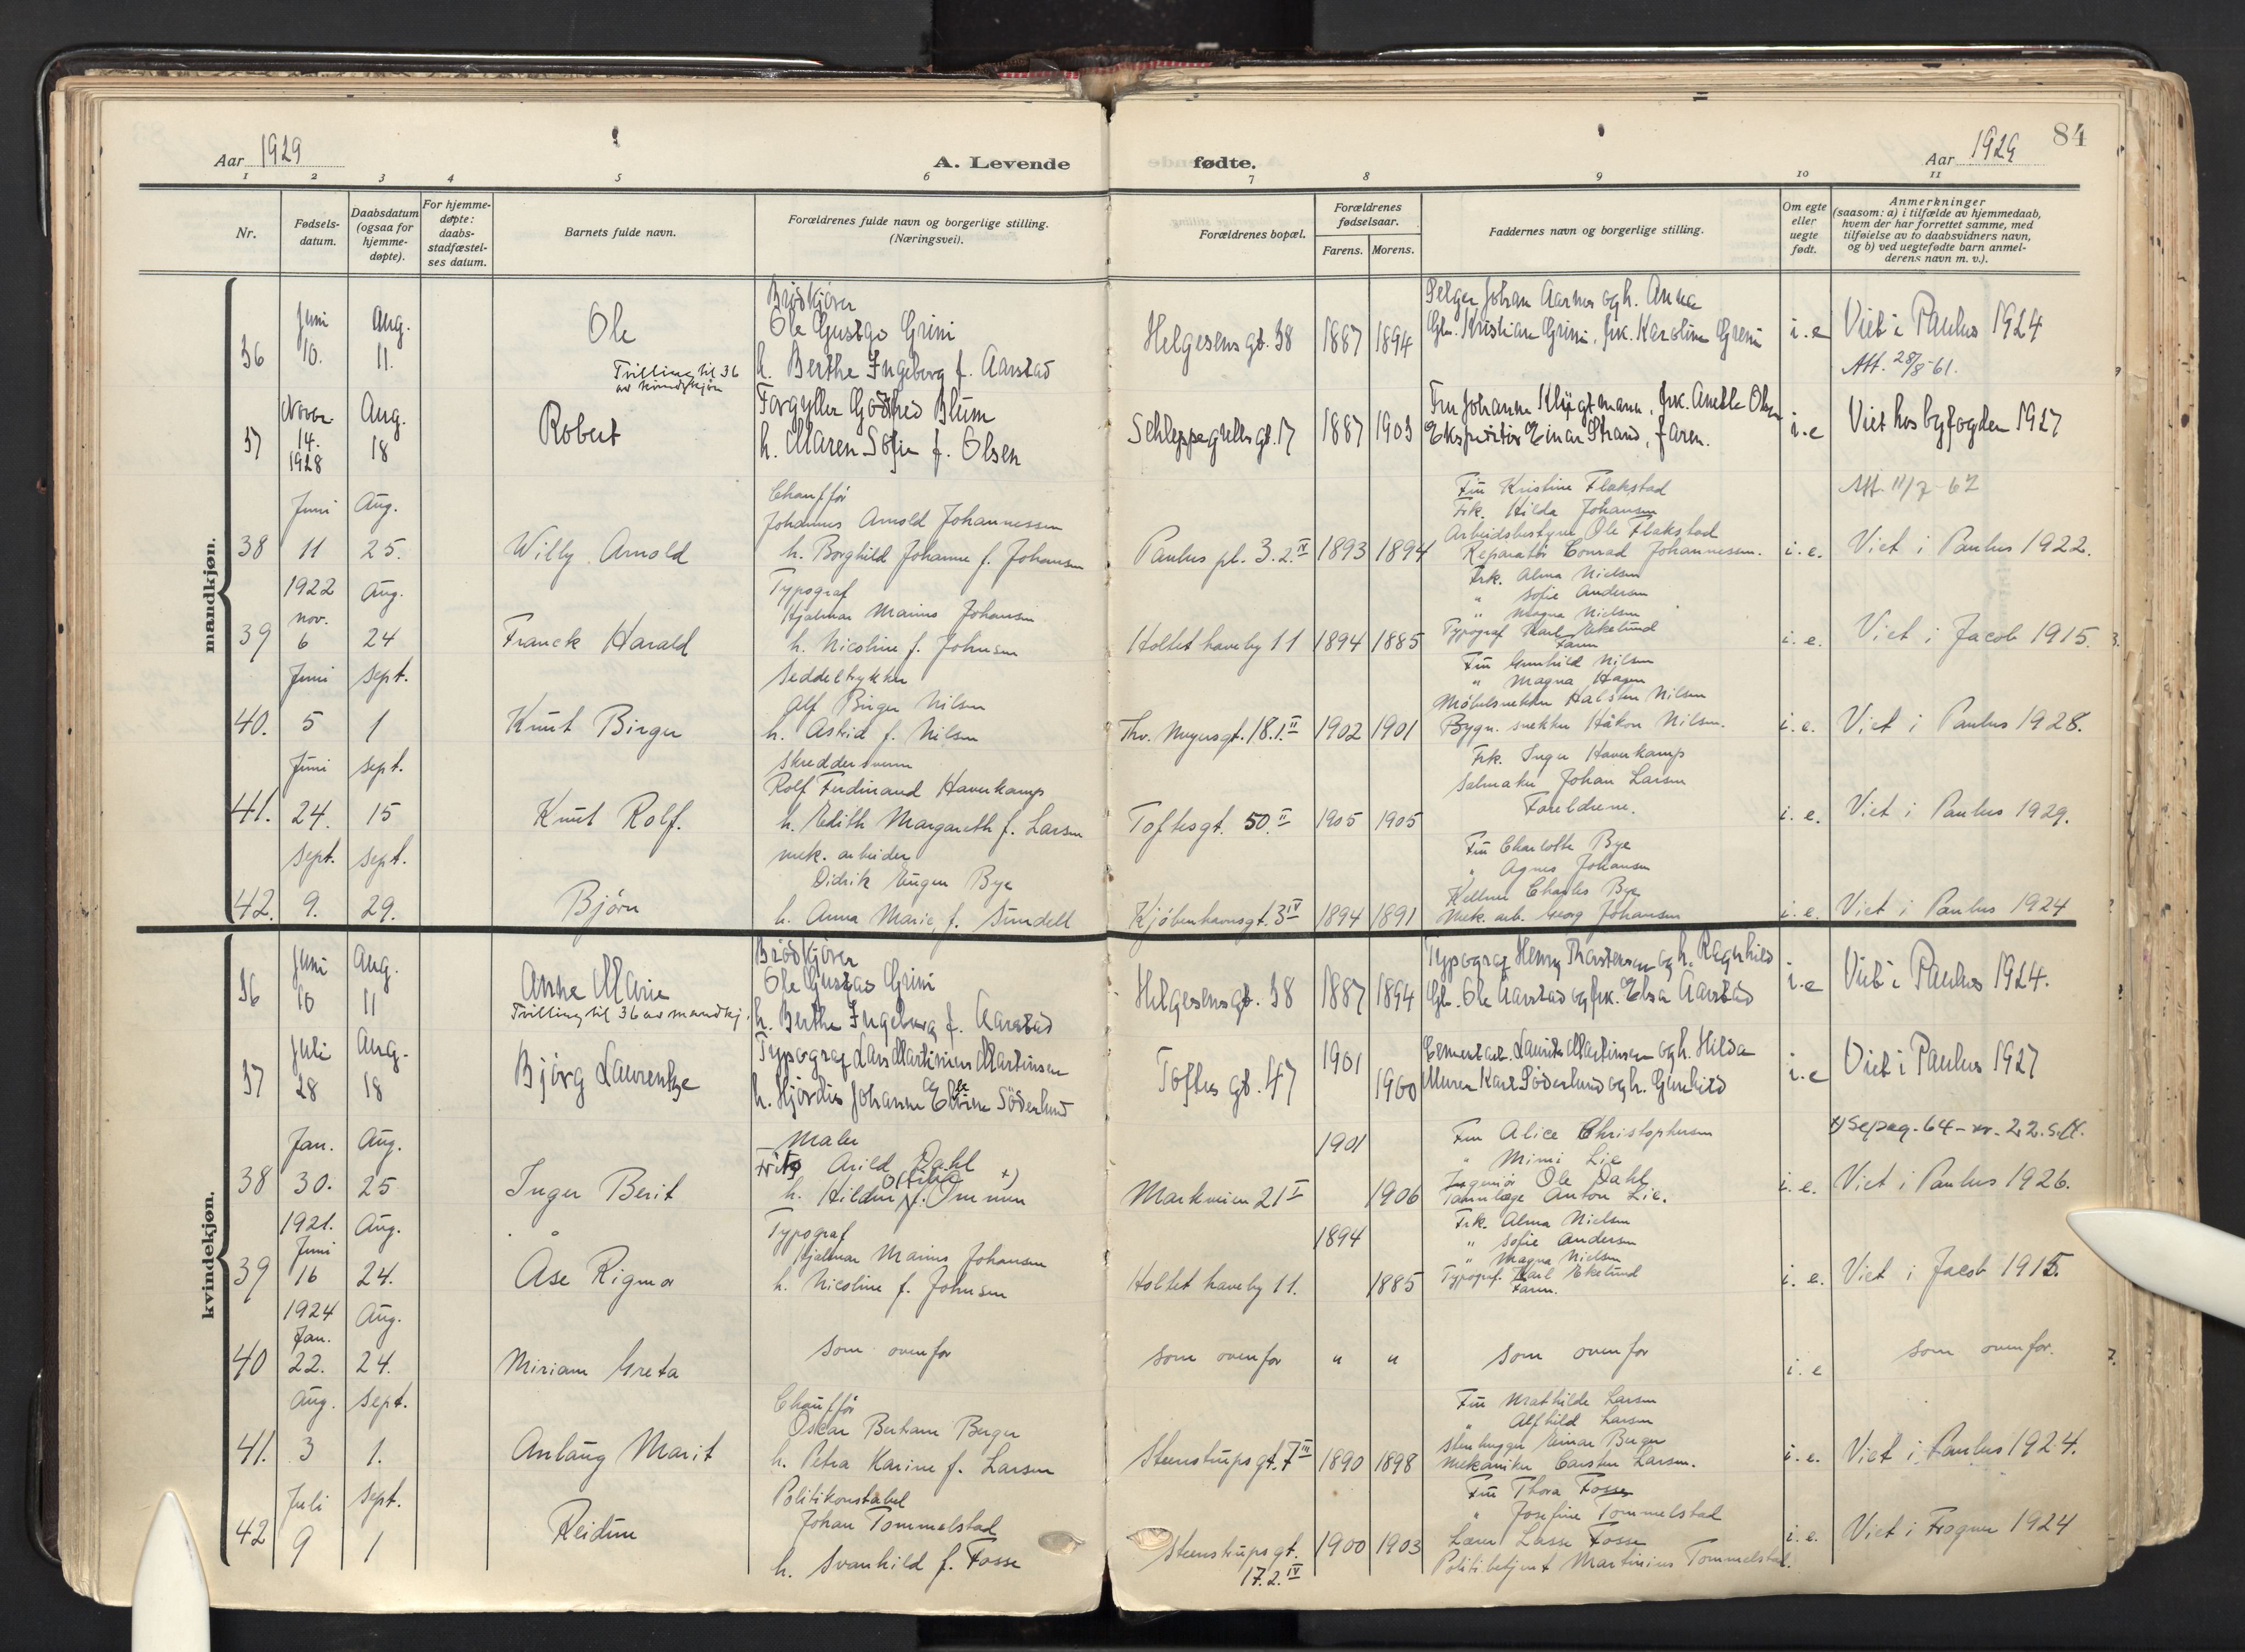 Aar 1929
A. Levende
fødte.
Aar 1929
84
1 2 3 4 5 6 7 8 9 10 11
Nr.
Fødsels-
datum.
Daabsdatum
(ogsaa for
hjemme-
døpte).
For hjemme-
døpte:
daabs-
stadfæstel-
ses datum.
Barnets fulde navn.
Forældrenes fulde navn og borgerlige stilling.
(Næringsvei).
Forældrenes bopæl.
Forældrenes
fødselsaar.
Farens. Morens.
Faddernes navn og borgerlige stilling.
Om egte
eller
uegte
født.
Anmerkninger
(saasom: a) i tilfælde av hjemmedaab,
hvem der har forrettet samme, med
tilføielse av to daabsvidners navn,
og b) ved uegtefødte barn anmel-
derens navn m. v.).
mandkjøn.
36
Juni
10.
Aug.
11.
Ole
Tvilling til 36
av kvindekjøn
Brødkjører
Ole Gustav Grini
h. Berthe Ingeborg f. Aarstad
Helgesens gt. 38
1887 1894
Selger Johan Aarnes og h. Anna
Gm. Kristian Grini, frk. Karoline Grini
i. e
Viet i Paulus 1924
Att. 28/8-61.
37
Novbr.
14.
1928
Aug.
18
Robert
Forgyller Godtfred Blum
h. Maren Sofie f. Olsen
Schleppegrells gt. 17
1887 1903
Fru Johanne Klügtmann, frk. Anette Olsen
Ekspeditør Einar Strand, faren.
i. e
Viet hos byfogden 1927
Att. 11/7-62
38
Juni
11
Aug.
25.
Willy Arnold
Chauffør
Johannes Arnold Johannessen
h. Borghild Johanne f. Johansen
Paulus pl. 3. 2. IV
1893 1894
Fru Kristine Flakstad
Frk. Hilda Johansen
Arbeidsbestyrer Ole Flakstad
Reparatør Conrad Johannessen.
i. e.
Viet i Paulus 1922.
39
1922
nov.
6
Aug.
24
Franck Harald
Typograf
Hjalmar Marius Johansen
h. Nicoline f. Johnsen
Holtet haveby 11
1894 1885
Frk. Alma Nielsen
" Sofie Andersen
" Magna Nielsen
Typograf Karl Ekelund
Faren
i. e.
Viet i Jacob 1915.
40.
Juni
5
Sept.
1
Knut Birger
Seddeltrykker
Alf Birger Nilsen
h. Astrid f. Nilsen
Thv. Meyersgt. 18. 1. II
1902 1901
Fru Gunhild Nilsen
" Magna Hagen
Møbelsnekker Halsten Nilsen
Bygn. snekker Håkon Nilsen.
i. e.
Viet i Paulus 1928.
41.
Juni
24.
sept.
15
Knut Rolf.
Skreddersvenn
Rolf Ferdinand Haverkamp
h. Edith Margareth f. Larsen
Toftesgt. 50. II
1905 1905
Frk. Inger Haverkamp
Salmaker Johan Larsen
Foreldrene.
i. e.
Viet i Paulus 1929.
42.
Sept.
9.
sept.
29.
Bjørn
mek. arbeider
Didrik Eugen Bye
h. Anna Marie f. Sundell
Kjøbenhavnsgt. 3 IV
1894 1891
Fru Charlotte Bye
" Agnes Johansen
Kellner Charles Bye
Mek. arb. Georg Johansen
i. e.
Viet i Paulus 1924
kvindekjøn.
36
Juni
10
Aug.
11
Anne Marie
Tvilling til 36 av mandkj.
Brødkjører
Ole Gustav Grini
h. Berthe Ingeborg f. Aarstad
Helgesens gt. 38
1887 1894
Typograf Henry Thorstensen og h. Ragnhild
Gm. Ole Aarstad og frk. Elsa Aarstad
i. e
Viet i Paulus 1924.
37
Juli
28
Aug.
18
Bjørg Laurentze
Typograf Lars Martinius Martinsen
h. Hjørdis Johanne Söderlund
Toftes gt. 47
1901
1900
Cementarb. Laurits Martinsen og h. Hilda
Murer Karl Söderlund og h. Gunhild
i. e
Viet i Paulus 1927
38
Jan.
30.
Aug.
25
Inger Berit
Maler
Fritz Arild Dahl
h. Hildur f. Ommen +)
Markveien 21 I
1901
1906
Fru Alice Christophersen
" Mimi Lie
Ingeniør Ole Dahl
Tannlæge Anton Lie.
i. e.
+) Se peg.-64-nr. 22. S.A.
Viet i Paulus 1926.
39
1921.
Juni
16
Aug.
24.
Åse Rigmor
Typograf
Hjalmar Marius Johansen
h. Nicoline f. Johnsen
Holtet haveby 11.
1894
1885
Frk. Alma Nielsen
" Sofie Andersen
" Magna Nielsen
Typograf. Karl Ekelund
Faren.
i. e.
Viet i Jacob 1915.
40
1924
Jan.
22.
Aug.
24.
Miriam Greta
Som ovenfor
Som ovenfor
" "
Som ovenfor
i. e
Som ovenfor.
41.
Aug.
3
Sept.
1.
Anlaug Marit
Chauffør
Oscar Bertram Berger
h. Petra Karine f. Larsen
Steenstrupsgt. 7 III
1890 1898
Fru Mathilde Larsen
" Alfhild Larsen
Stenhugger Einar Berger
Mekaniker Carsten Larsen.
i. e.
Viet i Paulus 1924.
42
Juli
9
Sept.
1
Reidun
Politikonstabel
Johan Tommelstad
h. Svanhild f. Fosse
Steenstrupsgt.
17. 2. IV
1900 1903
Fru Thora Fosse
" Josefine Tommelstad
Lærer Lasse Fosse
Politibetjent Martinius Tommelstad.
i. e.
Viet i Frogner 1924